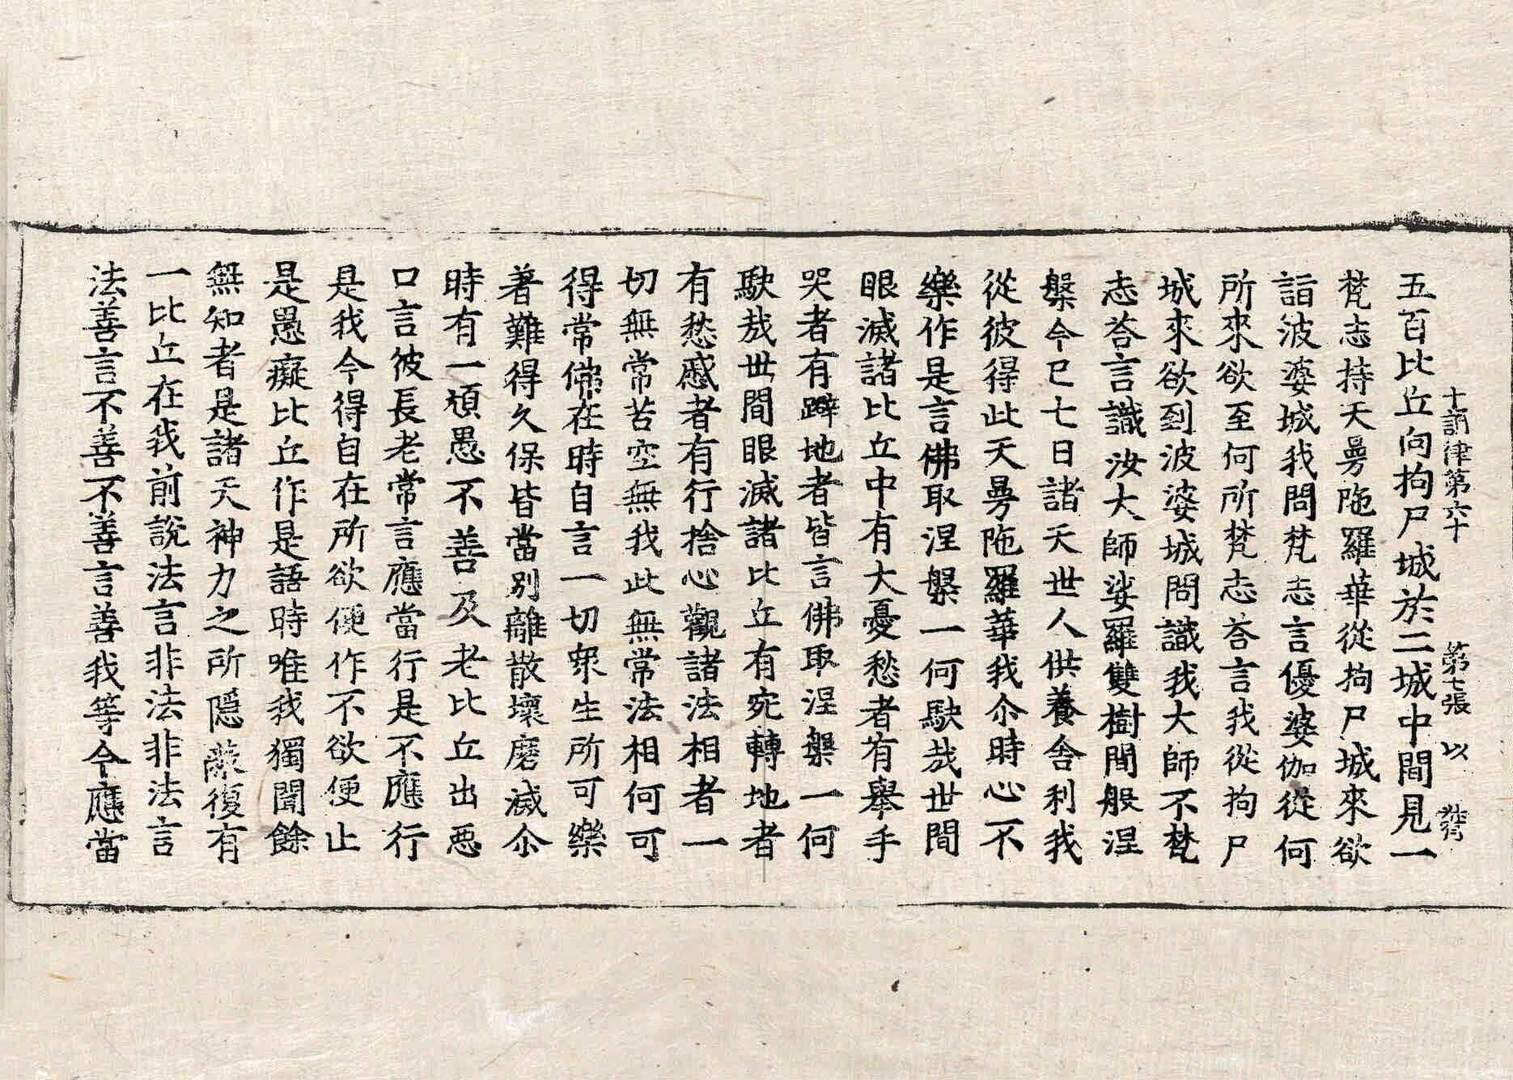 十誦律第六十　第七張　以
五百比丘向拘尸城於二城中間見一
梵志持天曼陁羅華從拘尸城來欲
詣波婆城我問梵志言優婆伽從何
所來欲至何所梵志荅言我從拘尸
城來欲到波婆城問識我大師不梵
志荅言識汝大師娑羅雙樹間般涅
槃今已七日諸天世人供養舍利我
從彼得此天曼陁羅華我尒時心不
樂作是言佛取涅槃一何駃哉世間
眼滅諸比丘中有大憂愁者有舉手
哭者有躃地者皆言佛取涅槃一何
駃哉世間眼滅諸比丘有宛轉地者
有愁慼者有行捨心觀諸法相者一
切無常苦空無我此無常法相何可
得常佛在時自言一切衆生所可樂
著難得久保皆當別離散壞磨滅尒
時有一頑愚不善及老比丘出惡
口言彼長老常言應當行是不應行
是我今得自在所欲便作不欲便止
是愚癡比丘作是語時唯我獨聞餘
無知者是諸天神力之所隱蔽復有
一比丘在我前說法言非法非法言
法善言不善不善言善我等今應當